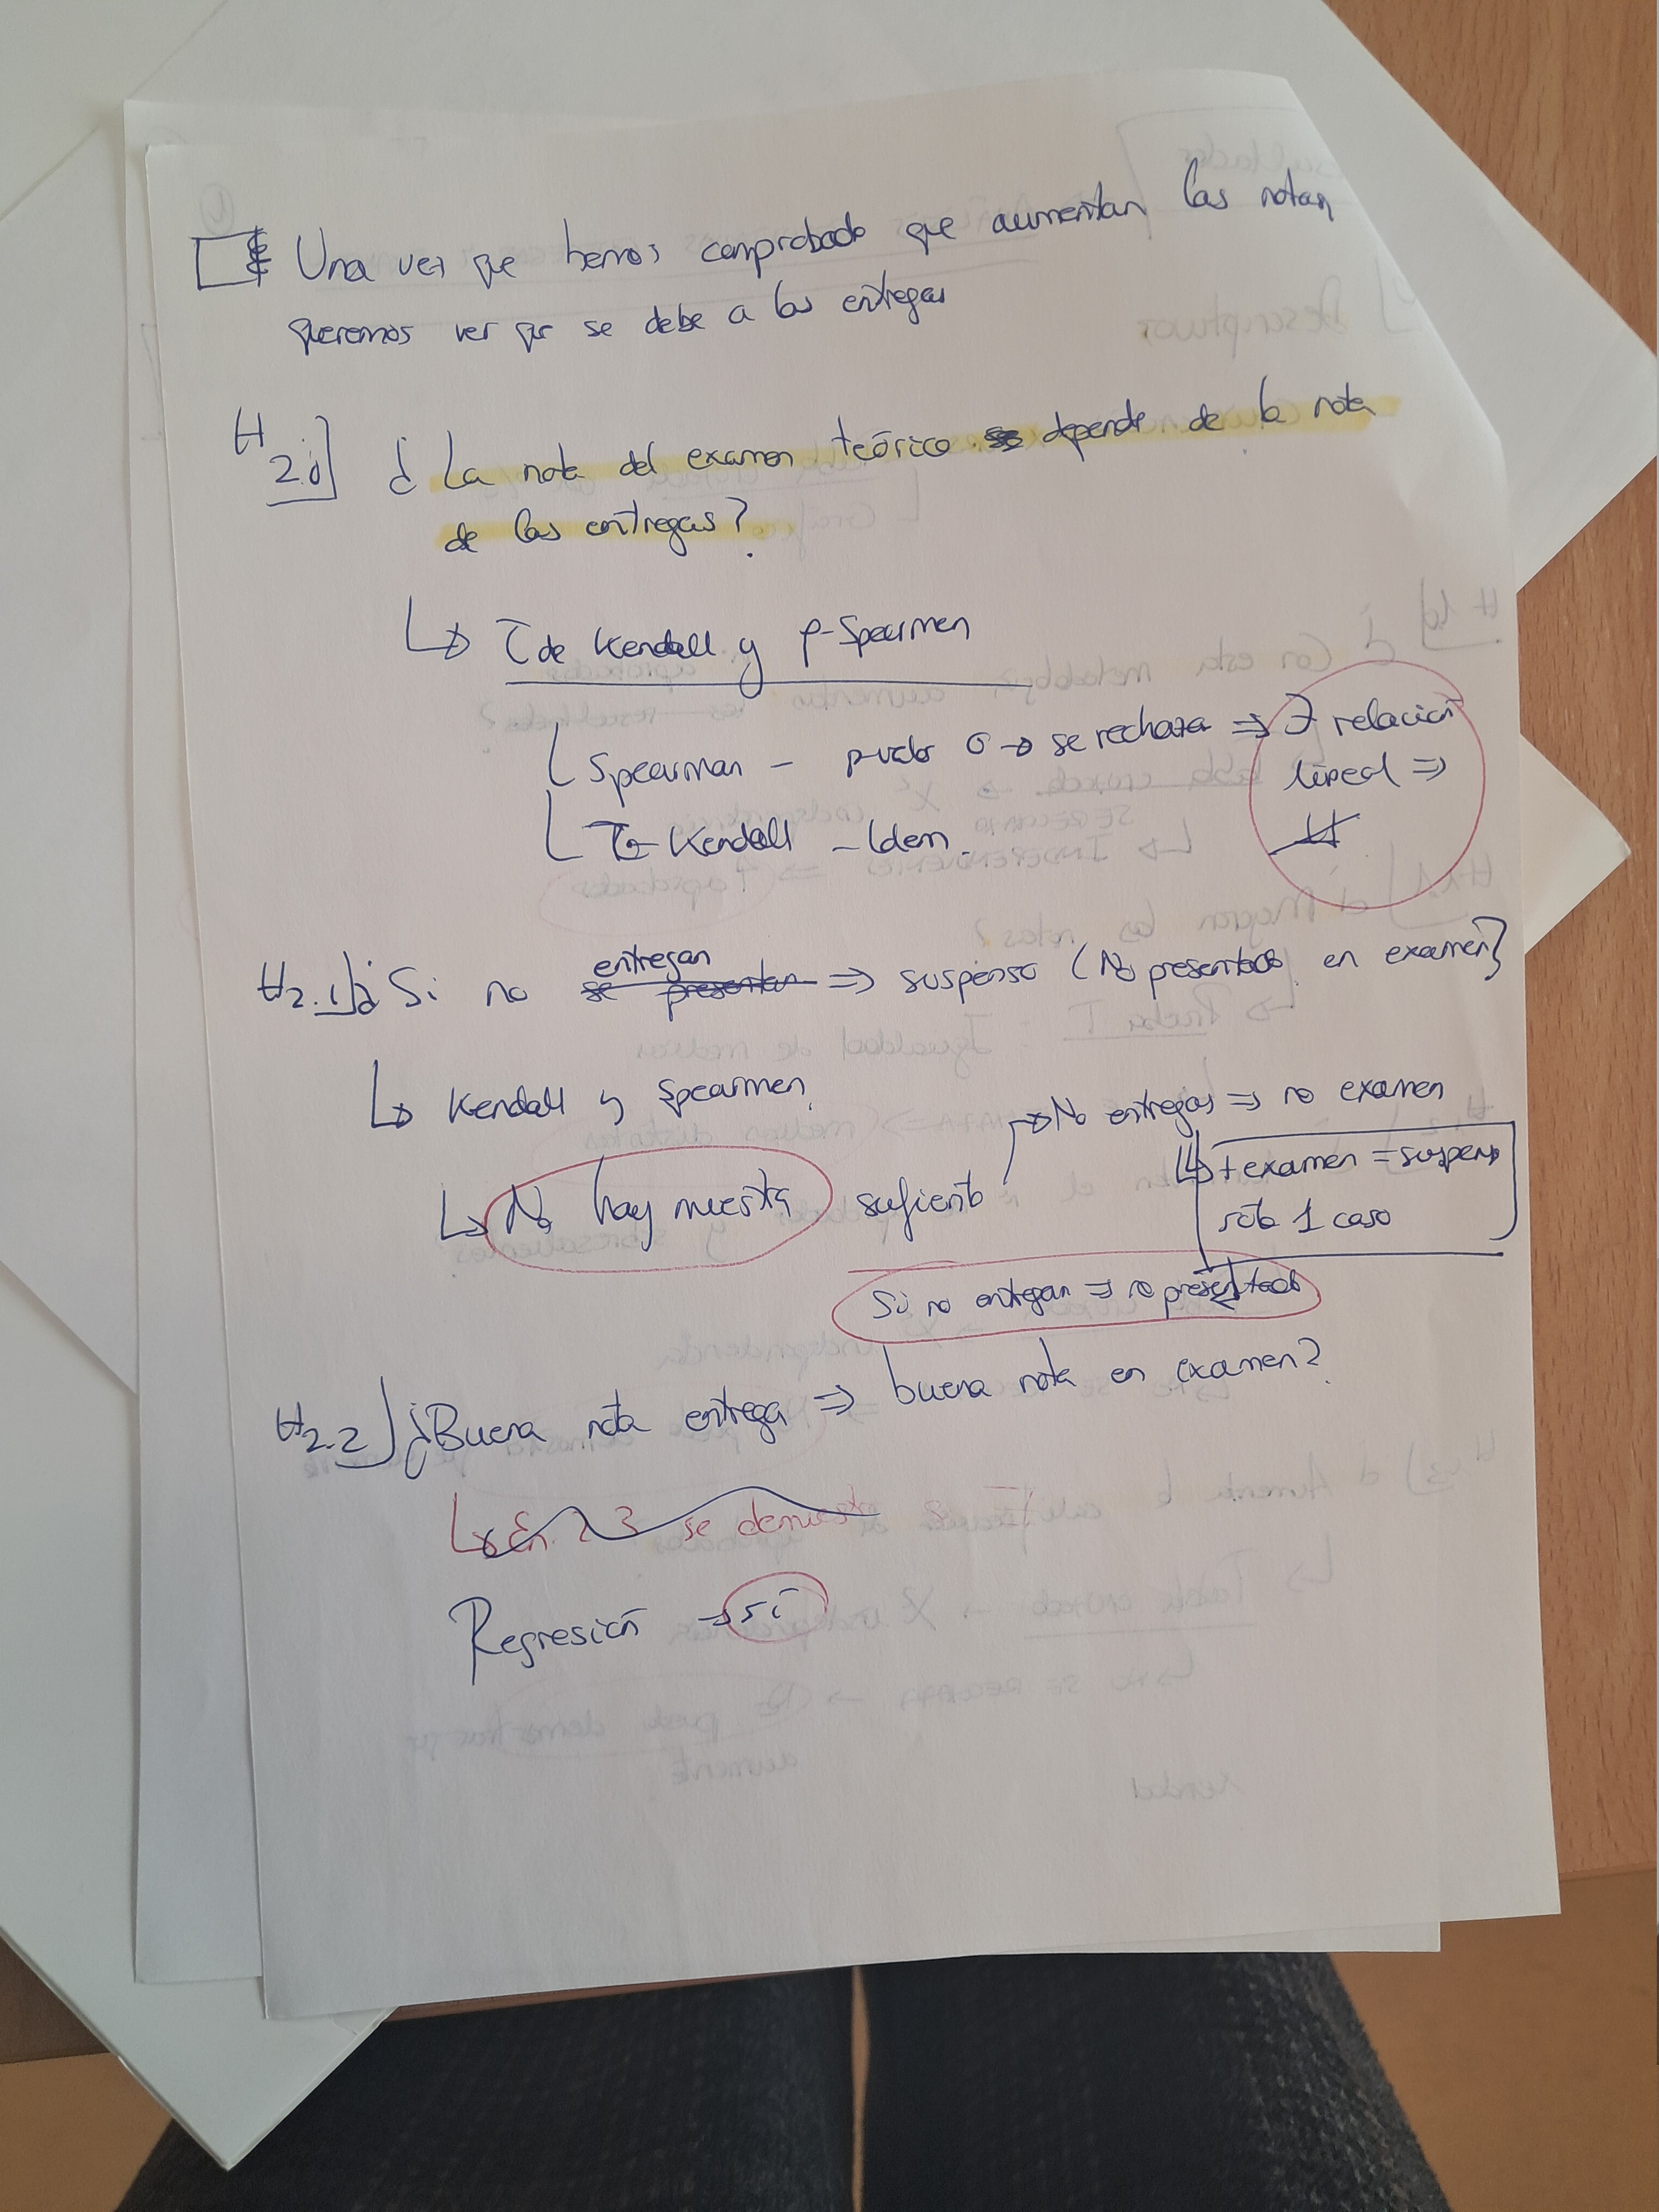 Una vez que hemos comprobado que aumentan las notas,
queremos ver que se debe a las entregas
H 2.0] ¿La nota del examen teórico depende de la nota
de las entregas?
↳ τ de Kendall y ρ-Spearman
Spearman - p-valor 0 → se rechaza ⇒ ∃ relación
lineal ⇒
τ-Kendall - Idem.
H 2.1] ¿Si no entregan ⇒ suspenso (No presentado en examen)
↳ Kendall y Spearman,
→ No entregas ⇒ no examen
↳ + examen = suspenso
sólo 1 caso
↳ No hay muestra suficiente
Si no entregan ⇒ no presentado
H 2.2] ¿Buena nota entrega ⇒ buena nota en examen?
↳ En 2.3 se demuestra
Regresión ⇒ Sí